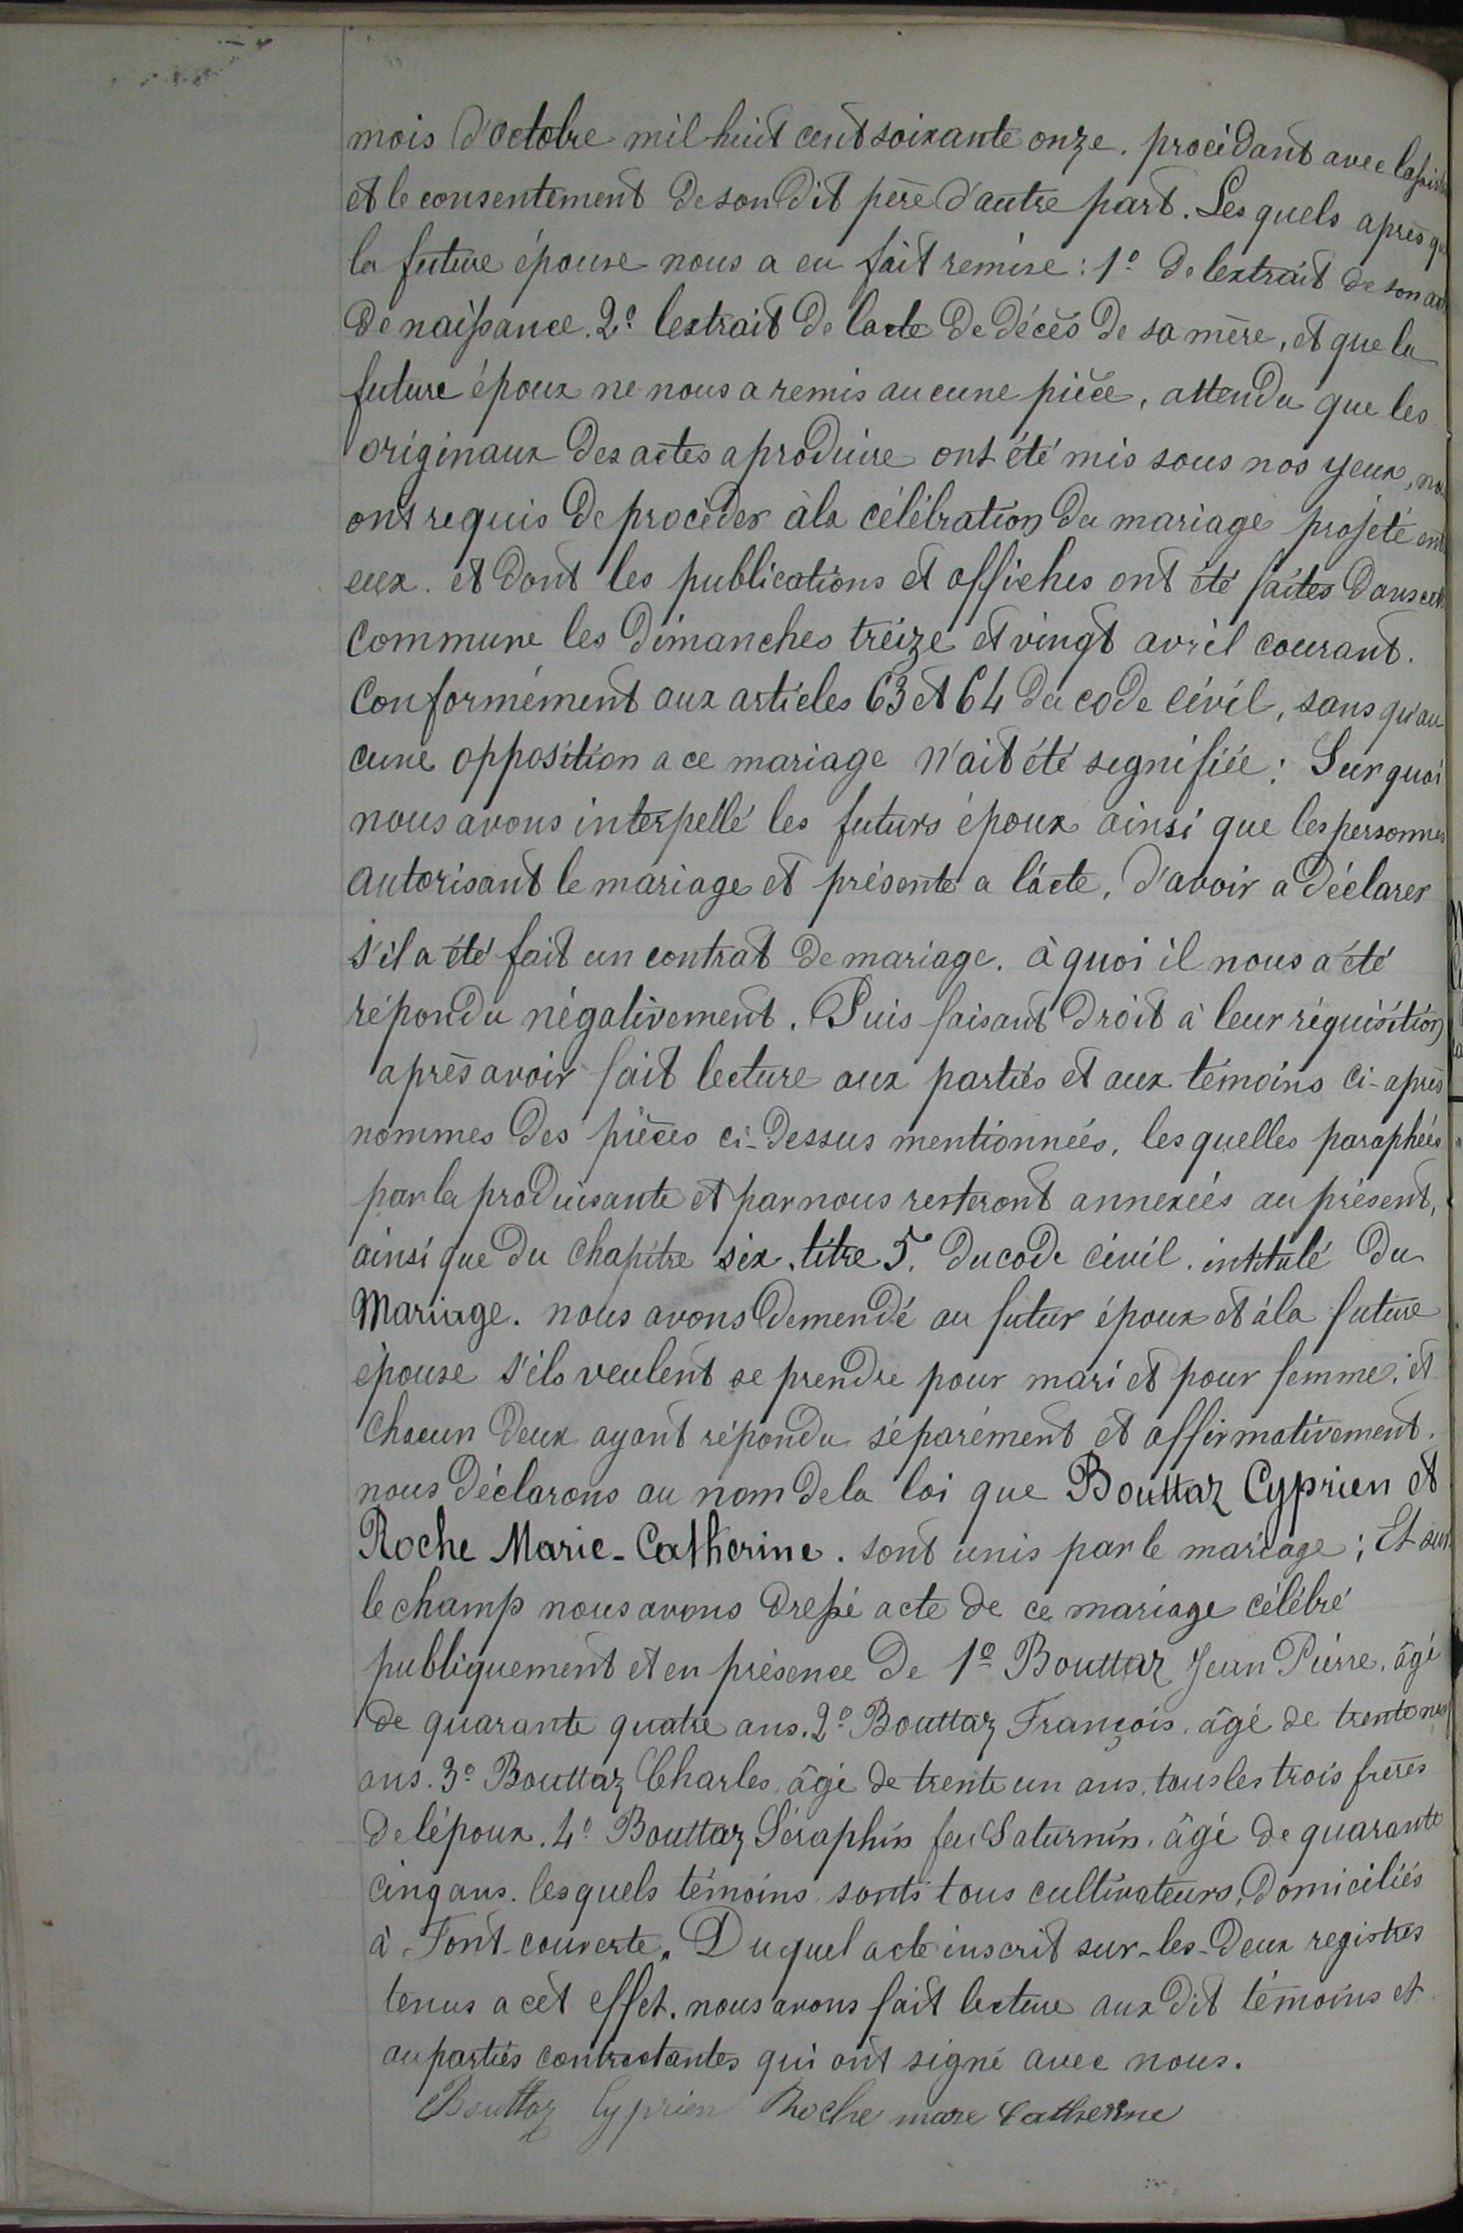 mois d'octobre mil huit cent soixante onze. procédant avec
et le consentement de son dit père d'autre part. Les quels après
la future épouse nous a eu fait remise : 1º de lextrait de son
de naissance. 2º lextrait de lacte de décès de sa mère, et que la
future époux ne nous a remis aucune pièce, attendu que les
originaux des actes a produire ont été mis sous nos yeux,
ont requis de procèder à la célébration du mariage projeté
eux. et dont les publications et affiches ont été faites dans
commune les dimanches treize et vingt avril courant.
Conformément aux articles 63 et 64 du code civil, sans qu'au
cune opposition a ce mariage n'ait été signifiée : Sur quoi
nous avons interpellé les futurs époux ainsi que les personnes
autorisant le mariage et présente a l'acte, d'avoir a déclarer
s'il a été fait un contrat de mariage. à quoi il nous a été
répondu négativement. Puis faisant droit à leur réquisition
après avoir fait lecture aux parties et aux témoins ci-après
nommes des pièces ci-dessus mentionnées, les quelles paraphées
par la produisante et par nous resteront annexées au présent,
ainsi que du chapitre six. titre 5. du code civil. intitulé du
Mariage. nous avons demendé au futur époux et à la future
épouse s'ils veulent se prendre pour mari et pour femme, et
chacun deux ayant répondu séparément et affirmativement.
nous déclarons au nom de la loi que Bouttaz Cyprien et
Roche Marie-Catherine. sont unis par le mariage ; Et sur
le champ nous avons dressé acte de ce mariage célébré
publiquement et en présence de 1º Bouttaz Jean Pierre. âgé
de quarante quatre ans. 2º Bouttaz François. âgé de trente
ans. 3º Bouttaz Charles, âgé de trente un ans, tous les trois frères
de lépoux. 4º Bouttaz Séraphin feu Saturnin. âgé de quarante
cinq ans. les quels témoins sonts tous cultivateurs, domiciliés
à Font-couverte. Du quel acte inscrit sur-les-deux registres
tenus a cet effet. nous avons fait lecture aux dit témoins et
au parties contractantes qui ont signé avec nous.
Bouttaz Cyprien Roche mare Catherine